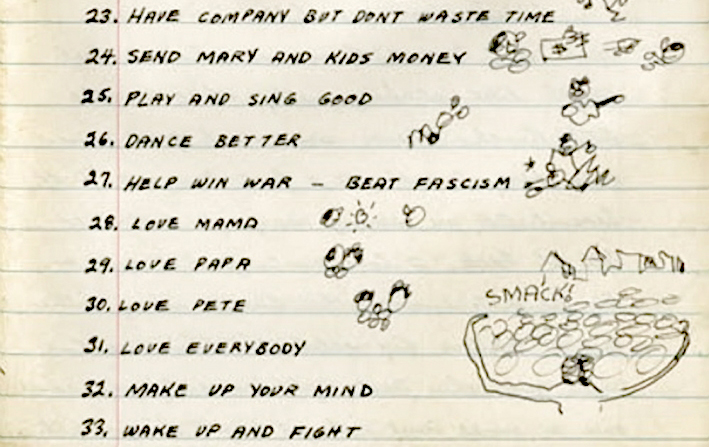 23. HAVE COMPANY BUT DONT WASTE TIME
24. SEND MARY AND KIDS MONEY
25. PLAY AND SING GOOD
26. DANCE BETTER
27. HELP WIN WAR - BEAT FASCISM
28. LOVE MAMA
29. LOVE PAPA
30. LOVE PETE
SMACK!
31. LOVE EVERYBODY
32. MAKE UP YOUR MIND
33. WAKE UP AND FIGHT